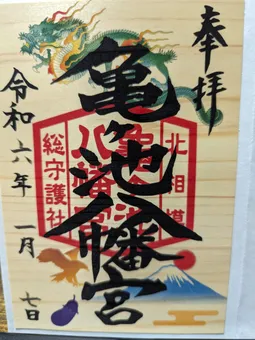 奉拝
北相模
亀ヶ池
八幡宮
総守護社
亀ヶ池八幡宮
令和六年 一月 七日